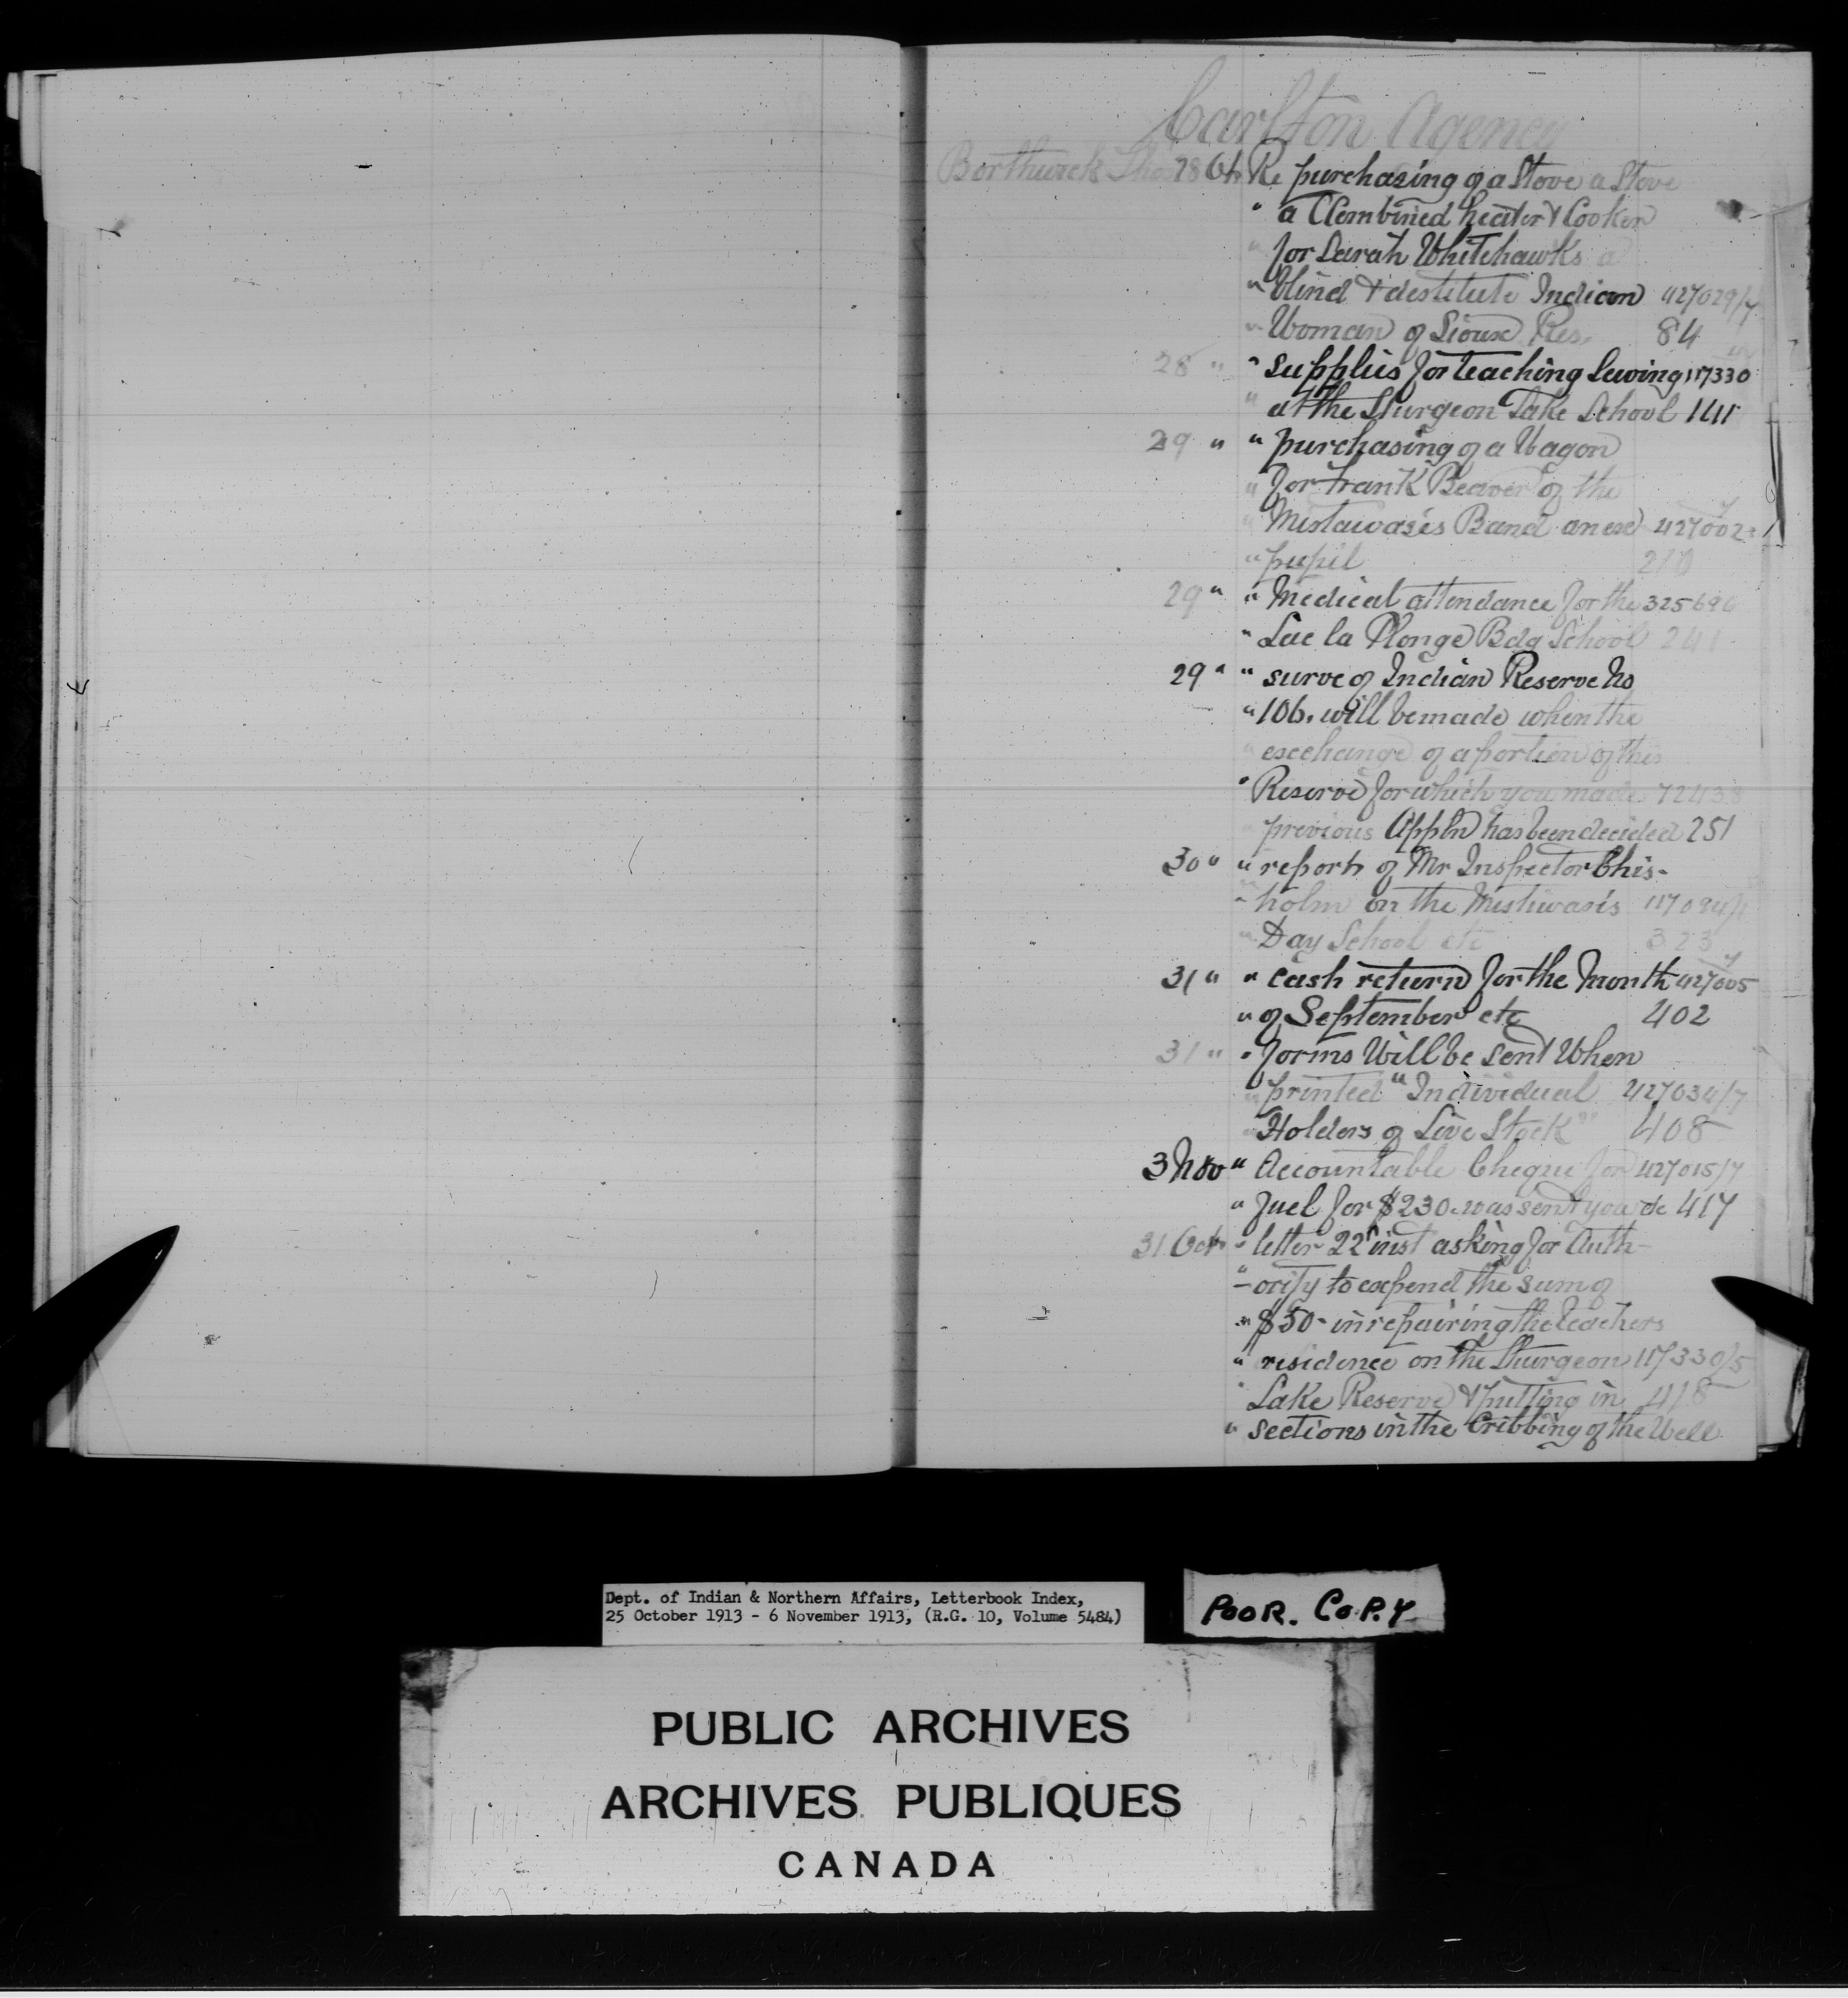 Carlton Agency
Borthwick Thos 28 Oct Re purchasing of a Stove a Stove
" a Combined heater & Cooker
" for Sarah Whitehawks a
" blind & destitute Indian 427029/7
" Woman of Sioux Res. 84
28 " " supplies for teaching Sewing 117330
" at the Sturgeon Lake School 141
29 " " purchasing of a Wagon
" for Frank Beaver of the
" Mistawasis Band an ex 427002
" pupil 210
29 " " Medical attendance for the 325696
" Lac la Plonge Bdg School 241
29 " " surve of Indian Reserve No
" 106. will be made when the
" exchange of a portion of this
" Reserve for which you made 72438
previous Appln has been decided 251
30 " " report of Mr Inspector Chis-
" holm on the Mistiwasis 117094/1
" Day School etc 323
31 " " cash return for the Month 427005
" of September etc 402
31 " " forms Will be sent When
" printed " Individual 427034/7
" Holders of Live Stock " 408
3 Nov " Accountable Cheque for 427015/7
" fuel for $230. was sent you &c 417
31 Oct " letter 22nd inst asking for Auth-
" -ority to expend the sum of
" $50- in repairing the teachers
" residence on the Sturgeon 117330/5
" Lake Reserve & putting in 418
" sections in the Cribbing of the Well
Dept. of Indian & Northern Affairs, Letterbook Index,
25 October 1913 - 6 November 1913, (R.G. 10, Volume 5484)
POOR. COPY
PUBLIC ARCHIVES
ARCHIVES PUBLIQUES
CANADA